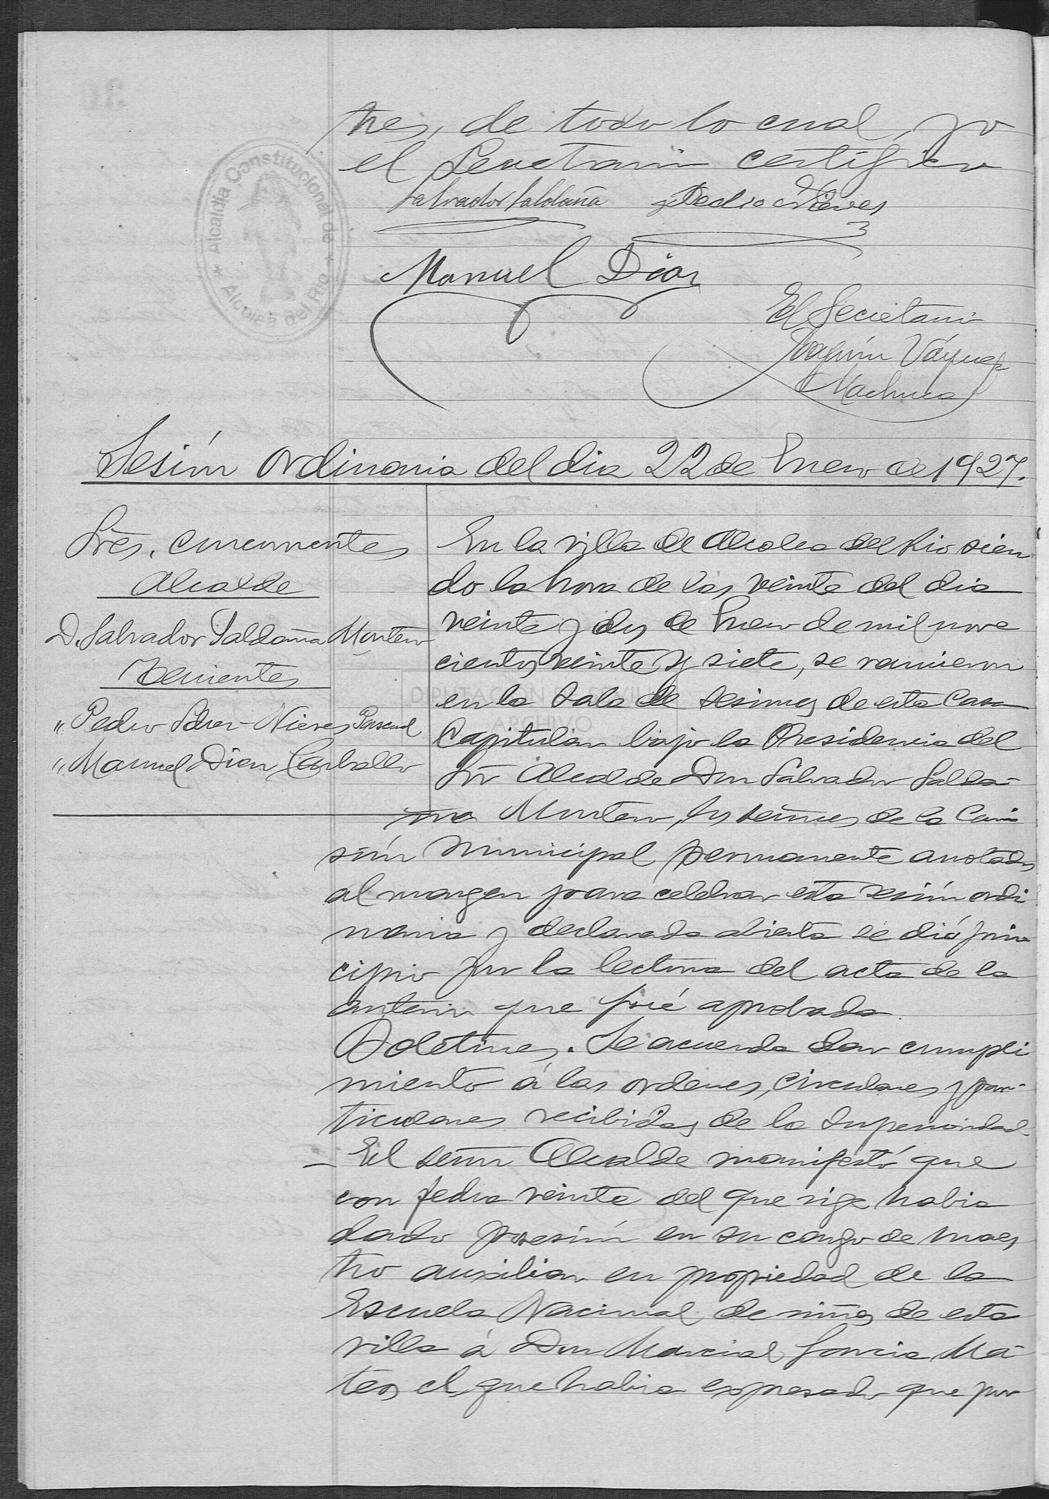 tres, de todo lo cual, yo
el Secretario certifico
Salvador Saldaña Pedro Nieves
Manuel Dian
El Secretario
Joaquín Vázquez
Machuca
Alcaldía Constitucional de
Alcolea del Río
Sesión ordinaria del dia 22 de Enero de 1927.
Sres. concurrentes
Alcalde
D. Salvador Saldaña Montero
Tenientes
" Pedro Nieves Pascual
" Manuel Dian Carballo
En la villa de Alcolea del Rio sien
do la hora de las veinte del dia
veinte y dos de Enero de mil nove
cientos veinte y siete, se reunieron
en la Sala de sesiones de esta Casa
Capitular bajo la Presidencia del
Sor Alcalde Don Salvador Salda-
ña Montero, los señores de la Comi
sión Municipal permanente anotados
al margen para celebrar esta sesión ordi
naria y declarada abierta se dió prin
cipio por la lectura del acta de la
anterior que fué aprobada.
Boletines. Se acuerda dar cumpli
miento á las ordenes, circulares y par-
ticulares recibidas de la Superioridad
- El señor Alcalde manifestó que
con fecha veinte del que rige habia
dado posesión en su cargo de maes
tro auxiliar en propiedad de la
Escuela Nacional de niños de esta
villa á Don Marcial Garcia Ma-
teos el que habia expresado que por
DIPUTACIÓN DE SEVILLA
ARCHIVO